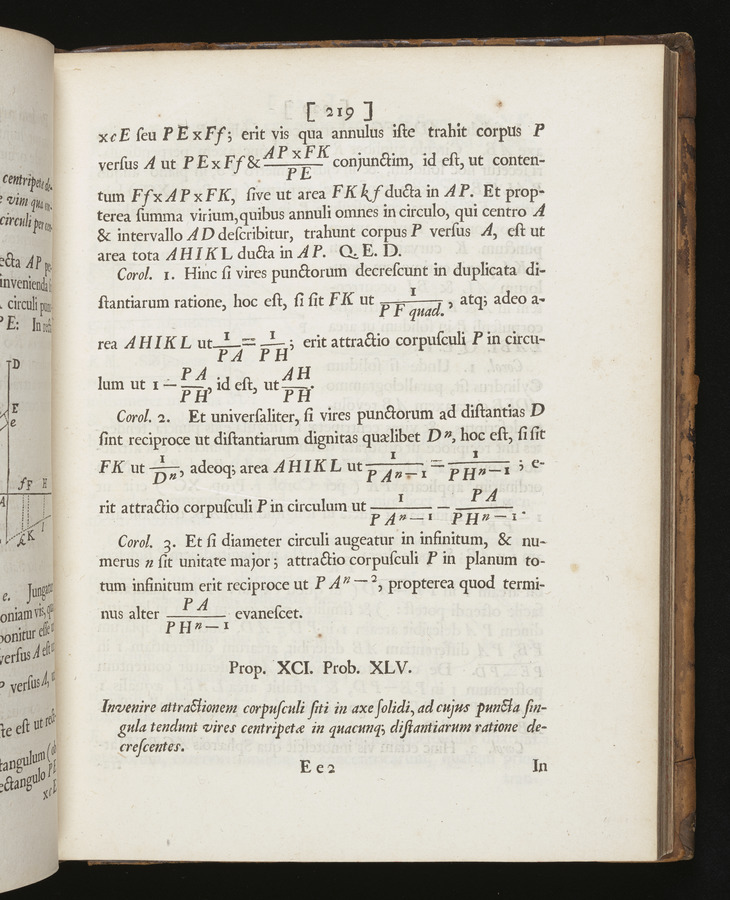 [ 219 ]
x c E ſeu P E x F f; erit vis qua annulus iſte trahit corpus P
verſus A ut P E x F f & AP x FK / PE conjunctim, id eſt, ut conten-
tum F f x A P x F K, ſive ut area F K k f ducta in A P. Et prop-
terea ſumma virium, quibus annuli omnes in circulo, qui centro A
& intervallo A D deſcribitur, trahunt corpus P verſus A, eſt ut
area tota A H I K L ducta in A P. Q. E. D.
Corol. 1. Hinc ſi vires punctorum decreſcunt in duplicata di-
ſtantiarum ratione, hoc eſt, ſi ſit F K ut 1 / P F quad., atq; adeo a-
rea A H I K L ut 1 / P A = 1 / P H; erit attractio corpuſculi P in circu-
lum ut 1 — P A / P H, id eſt, ut A H / P H.
Corol. 2. Et univerſaliter, ſi vires punctorum ad diſtantias D
ſint reciproce ut diſtantiarum dignitas quælibet Dⁿ, hoc eſt, ſi ſit
F K ut 1 / Dⁿ, adeoq; area A H I K L ut 1 / P Aⁿ⁻¹ = 1 / P Hⁿ⁻¹; e-
rit attractio corpuſculi P in circulum ut 1 / P Aⁿ⁻¹ — P A / P Hⁿ⁻¹.
Corol. 3. Et ſi diameter circuli augeatur in infinitum, & nu-
merus n ſit unitate major; attractio corpuſculi P in planum to-
tum infinitum erit reciproce ut P Aⁿ⁻², propterea quod termi-
nus alter P A / P Hⁿ⁻¹ evaneſcet.
Prop. XCI. Prob. XLV.
Invenire attractionem corpuſculi ſiti in axe ſolidi, ad cujus puncta ſin-
gula tendunt vires centripetæ in quacunq; diſtantiarum ratione de-
creſcentes.
E e 2 In